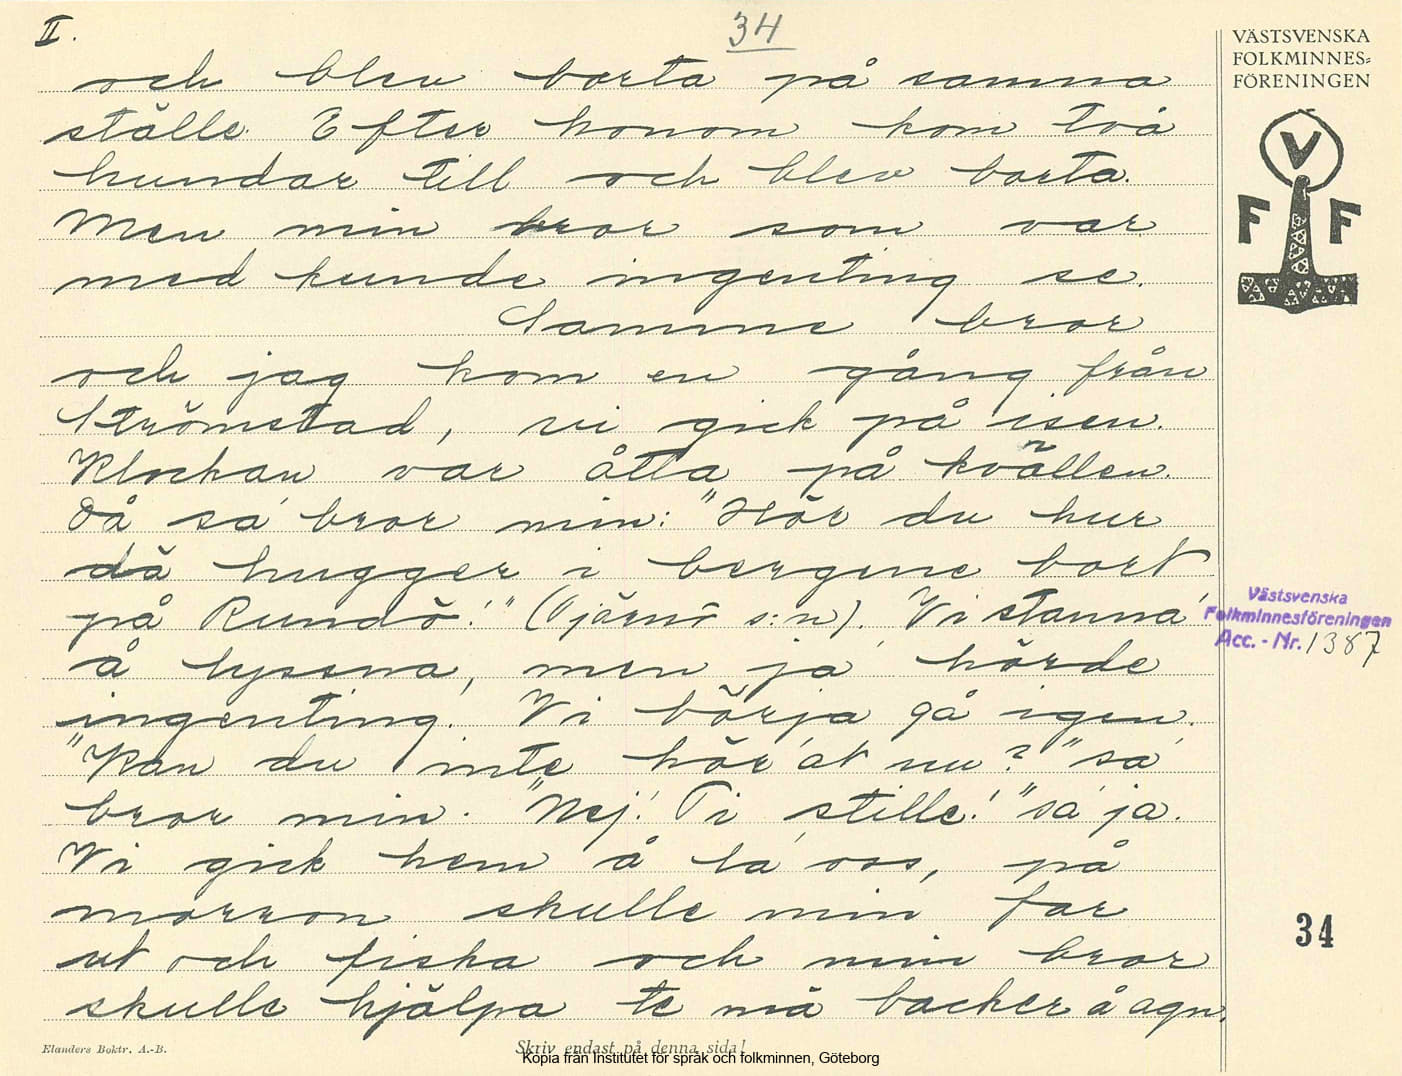 II.
34
och blev borta på samma
ställe. Efter honom kom två
hundar till och blev borta.
Men min bror som var
med kunde ingenting se.
Samme bror
och jag kom en gång från
Strömstad, vi gick på isen.
Klockan var åtta på kvällen.
Då sa' bror min: "Hör du hur
då hugger i bergene bort
på Rundö!" (Tjärnö s:n). Vi stanna'
å lyssna, men ja' hörde
ingenting. Vi börja gå igen.
"Kan du inte hör'at nu?" sa'
bror min. "Nej! Ti stille!" sa' ja.
Vi gick hem å la' oss, på
morron skulle min far
ut och fiska och min bror
skulle hjälpa te mä backer å agn.
VÄSTSVENSKA
FOLKMINNES-
FÖRENINGEN
V
F F
Västsvenska
Folkminnesföreningen
Acc. - Nr. 1387
34
Elanders Boktr. A.-B.
Skriv endast på denna sida!
Kopia från Institutet för språk och folkminnen, Göteborg